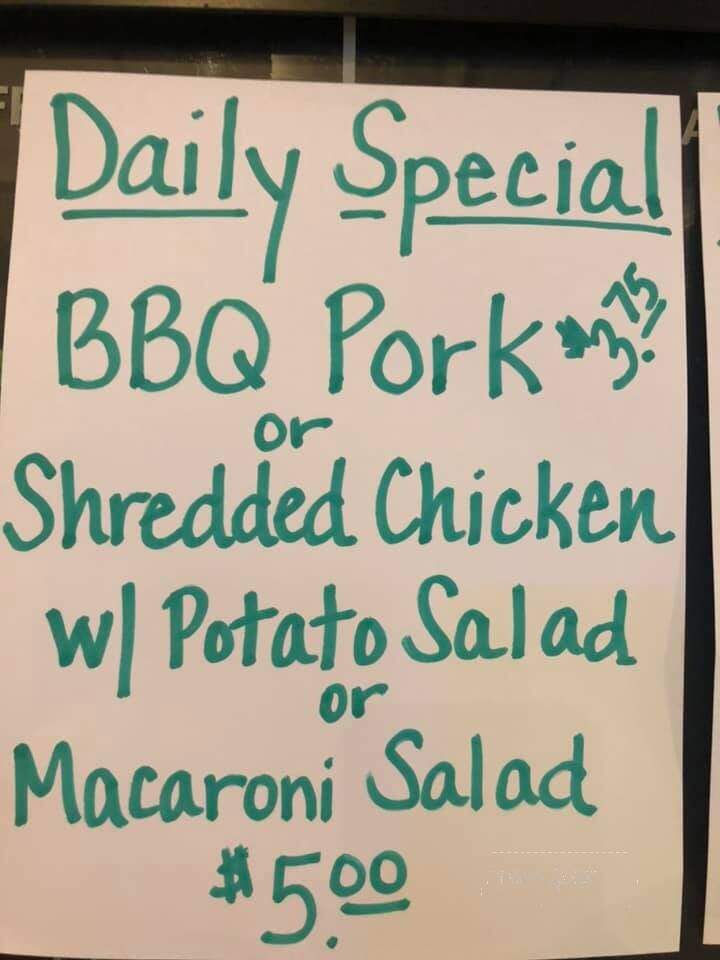 Daily Special
BBQ Pork $3.75
or
Shredded Chicken
w/ Potato Salad
or
Macaroni Salad
$5.00